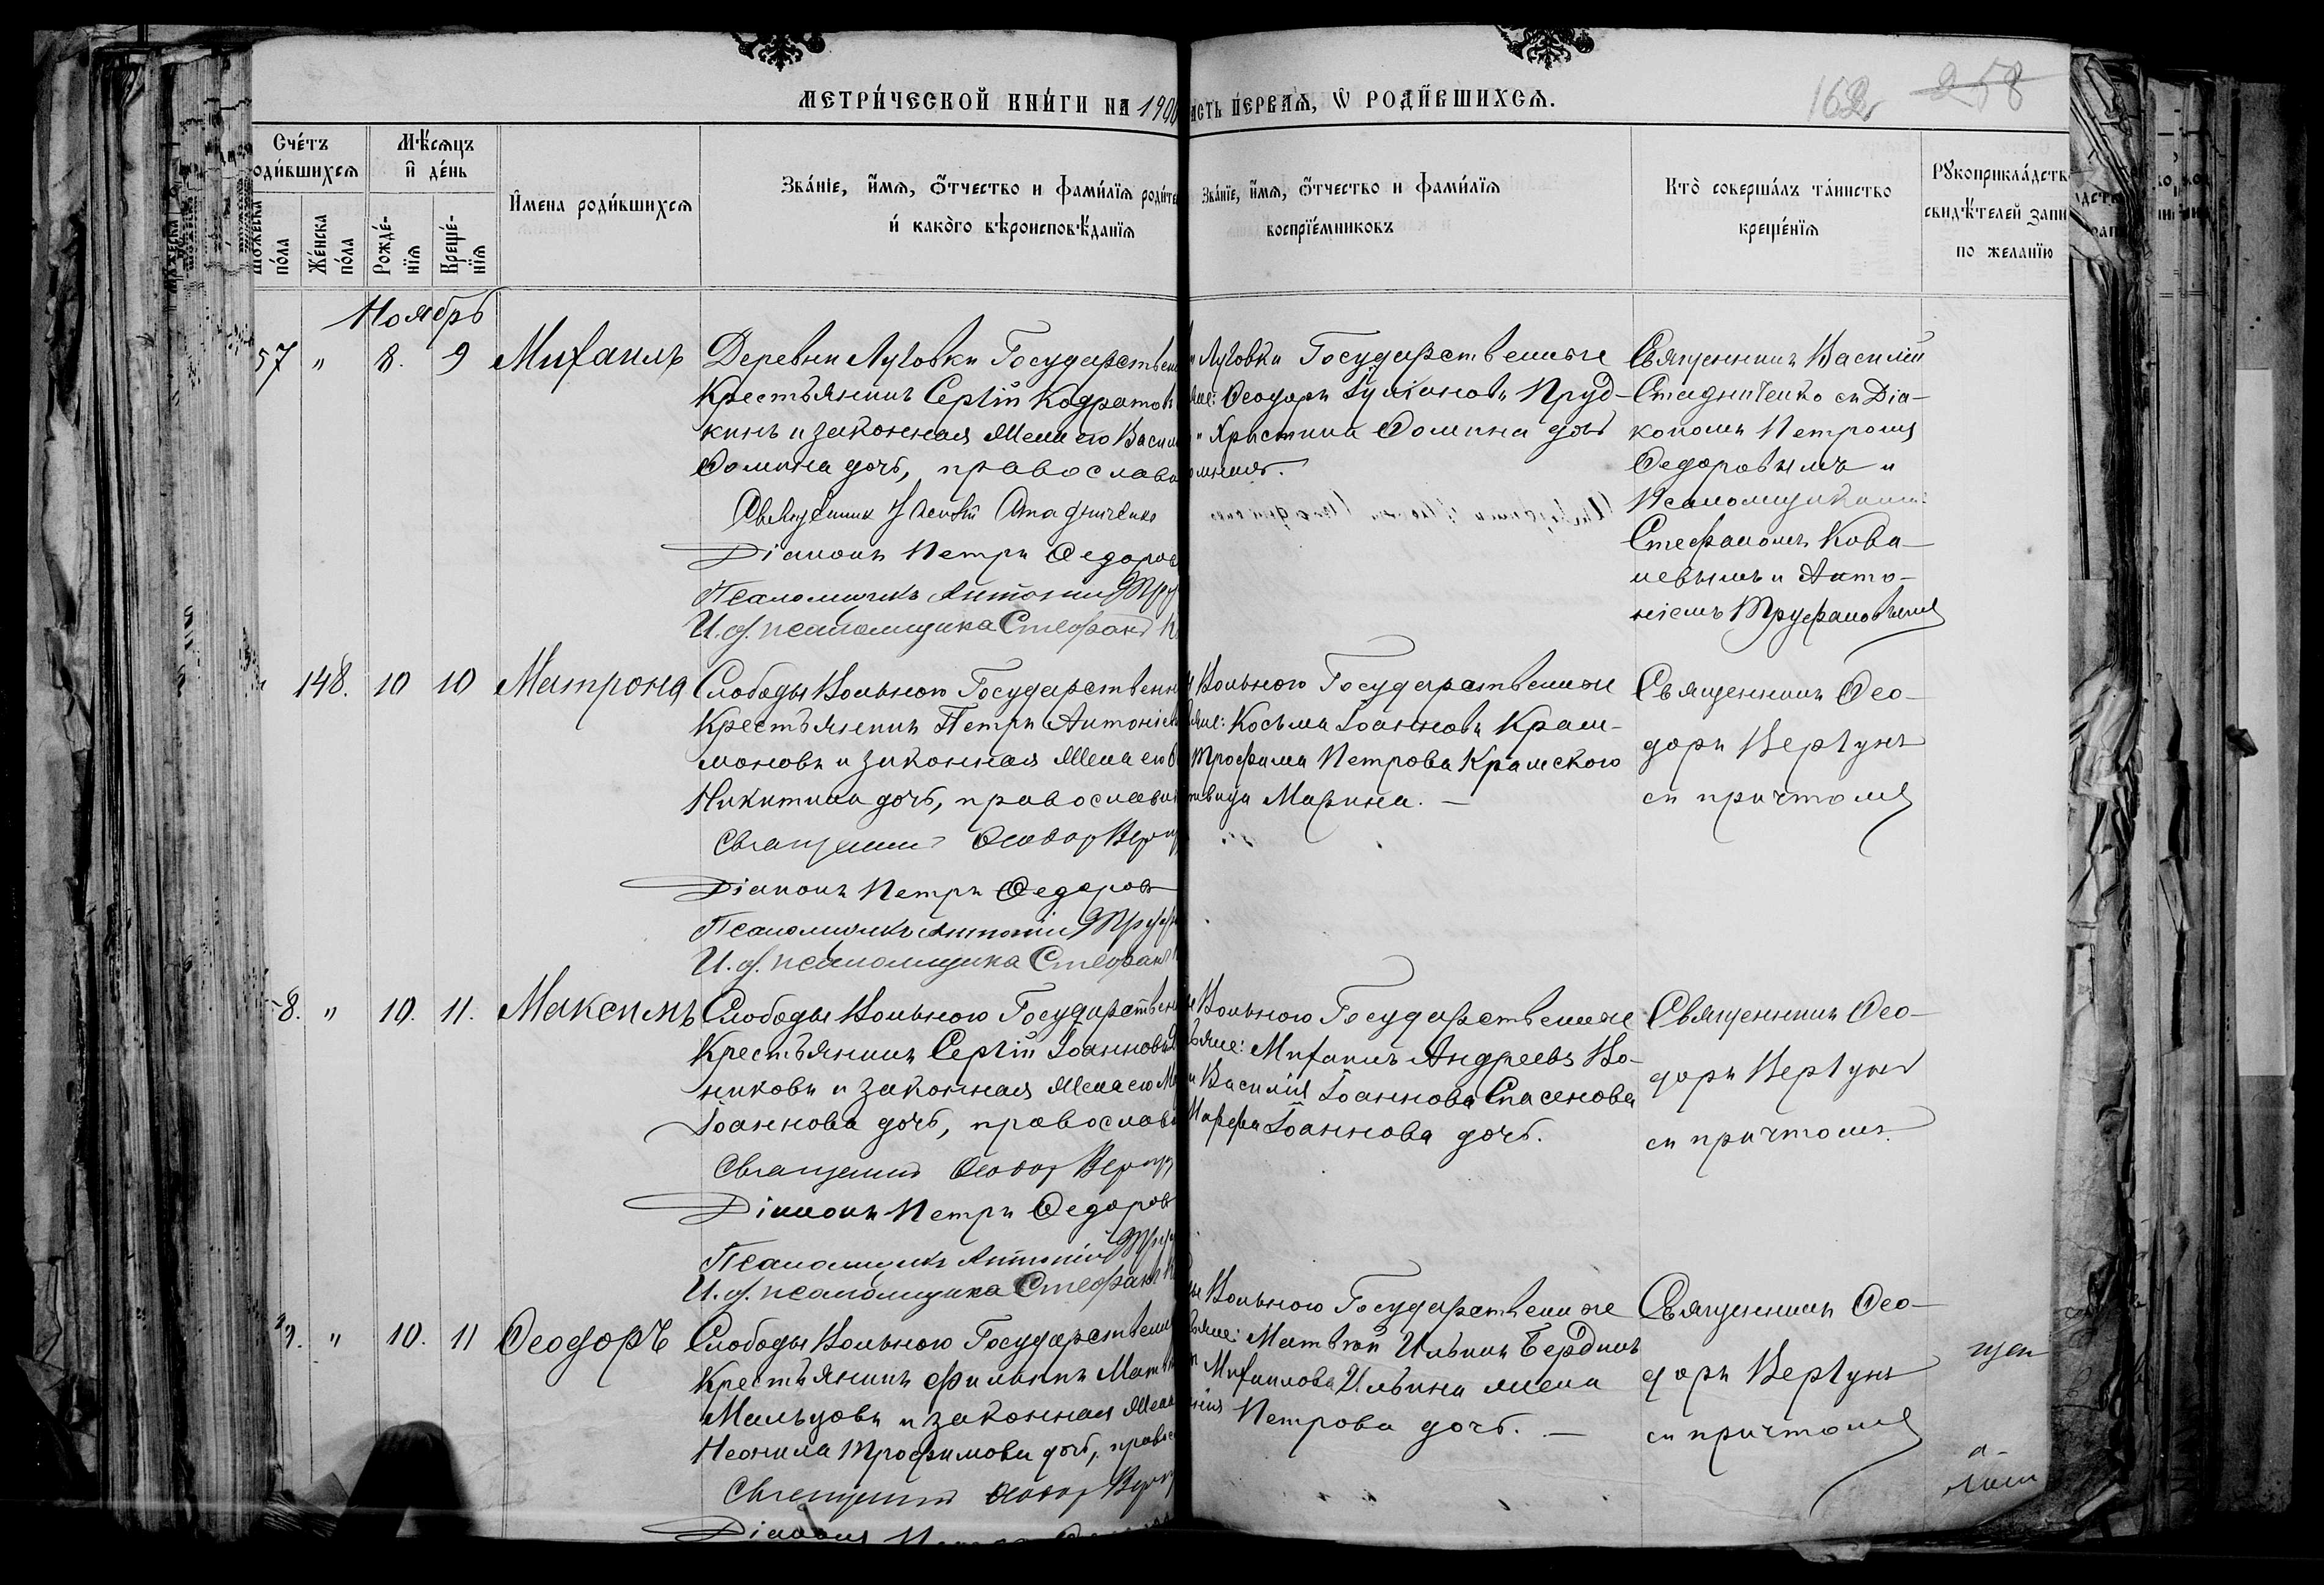 МЕТРИ́ЧЕСКОЙ КНИ́ГИ НА 1900
АСТЬ ПЕ́РВАЯ, Ѡ РОДИ́ВШИХСЯ.
162
258
Сче́тъ
оди́вшихся
Мѣ́сяцъ
и де́нь
Имена роди́вшихся
Зва́нїе, и́мя, ѻ́тчество и фами́лїя роди́те
и како́го вѣроисповѣ́данїя
Зва́нїе, и́мя, ѻ́тчество и фами́лїя
воспрїе́мниковъ
Кто̀ соверша́лъ та́инство
креще́нїя
Рꙋкоприкла́дств
свидѣ́телей запи
по желанїю
по́ла
Же́нска
по́ла
Рожде́-
нїя
Креще́-
нїя
Ноябрь
57 " 8. 9 Михаилъ
Деревни Луговки Государствен
Крестьянинъ Сергій Кодратов
кинъ и законная жена его Васил
Ѳомина дочь, православн
Священник Василій Стадниченко
Діаконъ Петръ Ѳедоров
Псаломщикъ Антоній Тру
И. об. псаломщика Стефанъ К
Луговки Государственные
Ѳеодоръ Іуліановъ Пруд-
Христина Ѳомина дочь
Священникъ Василій
Стадниченко съ Діа-
кономъ Петромъ
Ѳедоровымъ и
Псаломщиками:
Стефаномъ Кова-
левымъ и Анто-
ніемъ Труфановымъ
148. 10 10 Матрона
Слободы Вольного Государственн
Крестьянинъ Петръ Антоніев
моновъ и законная жена его
Никитина дочь, православн
Священник Ѳеодор Вергу
Діаконъ Петръ Ѳедоров
Псаломщикъ Антоній Труф
И. об. псаломщика Стефанъ
Вольного Государственные
Косьма Іоанновъ Крам-
Трофима Петрова Крамского
вица Марина. —
Священникъ Ѳео-
доръ Вергунъ
съ причтомъ
8. " 10. 11. Максимъ
Слободы Вольного Государствен
Крестьянинъ Сергій Іоанновъ
никовъ и законная жена его
Іоаннова дочь, православн
Священник Ѳеодор Вергу
Діаконъ Петръ Ѳедоров
Псаломщикъ Антоній Тру
И. об. псаломщика Стефанъ
Вольного Государственные
Михаилъ Андреевъ Во-
и Василія Іоаннова Спасенова
Марфа Іоаннова дочь.
Священникъ Ѳео-
доръ Вергунъ
съ причтомъ.
9. " 10. 11 Ѳеодоръ
Слободы Вольного Государственн
Крестьянинъ Филиппъ Матв
Мальцовъ и законная жена
Неонила Трофимова дочь, правос
Священник Ѳеодор Вергу
Діаконъ Петръ Ѳедоров
Вольного Государственные
Матвѣй Ильинъ Бердинъ
Михаилова Ильина жена
Петрова дочь. —
Священникъ Ѳео-
доръ Вергунъ
съ причтомъ